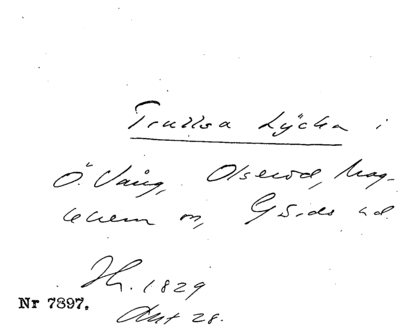 Trulsa Lÿcka i
Ö. Vång, Olseröd, Mag-
lehem sn, Gärds hd
Hr. 1829
Akt 28.
Nr 7897.